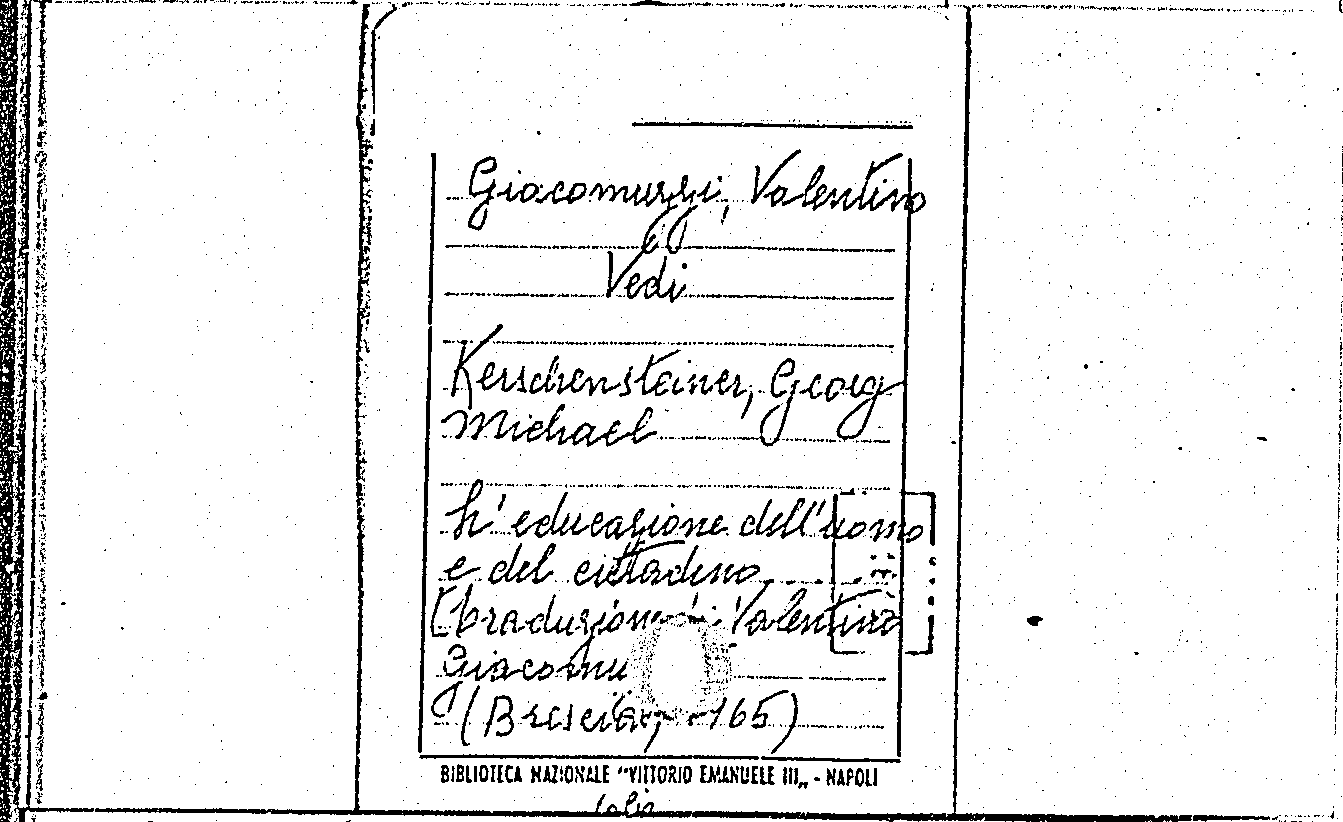 Giacomuzzi, Valentino
Vedi
Kerschensteiner, Georg
Michael
L'educazione dell'uomo
e del cittadino.
[Traduzione di Valentino
Giacomu
(Brescia, 165)
BIBLIOTECA NAZIONALE "VITTORIO EMANUELE III„ - NAPOLI